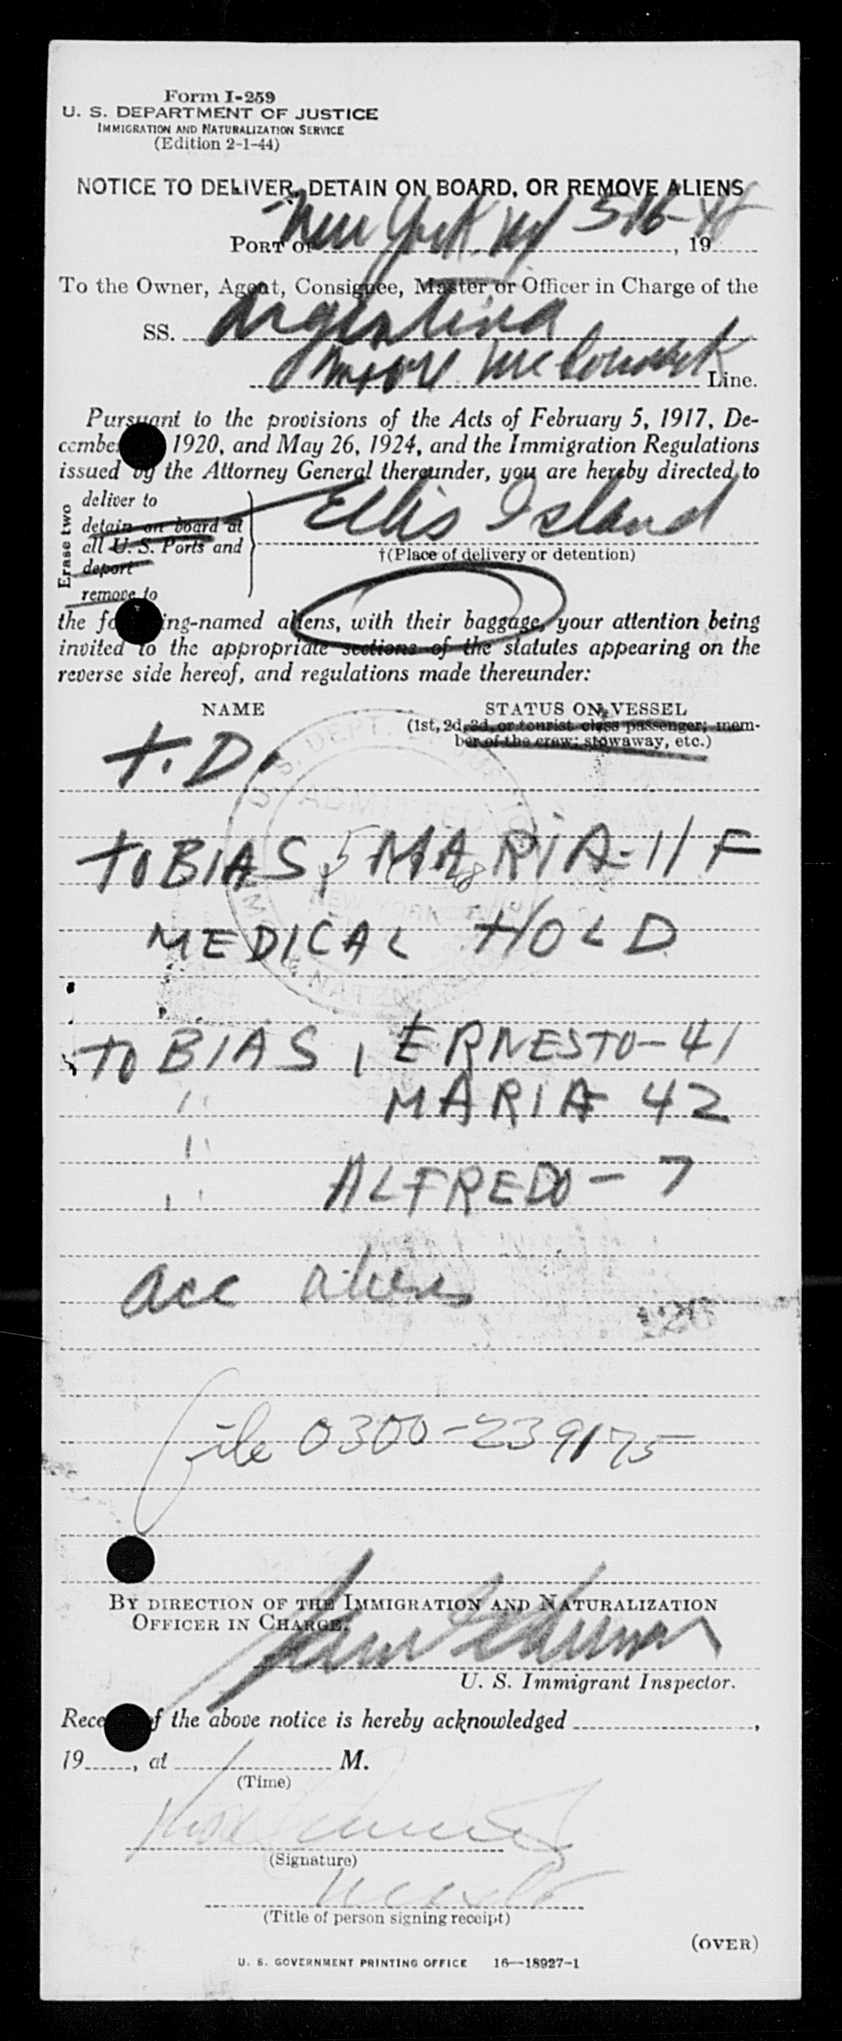 Form I-259
U. S. DEPARTMENT OF JUSTICE
IMMIGRATION AND NATURALIZATION SERVICE
(Edition 2-1-44)
NOTICE TO DELIVER, DETAIN ON BOARD, OR REMOVE ALIENS
PORT of New York NY 5-16-48, 19
To the Owner, Agent, Consignee, Master or Officer in Charge of the
SS. Argentina
Moore McCormack Line.
Pursuant to the provisions of the Acts of February 5, 1917, De-
cember 1920, and May 26, 1924, and the Immigration Regulations
issued by the Attorney General thereunder, you are hereby directed to
Erase two
deliver to
detain on board at
all U. S. Ports and
deport
remove to
Ellis Island
†(Place of delivery or detention)
the fo ing-named aliens, with their baggage, your attention being
invited to the appropriate sections of the statutes appearing on the
reverse side hereof, and regulations made thereunder:
NAME STATUS ON VESSEL
(1st, 2d, 3d, or tourist class passenger; mem-
ber of the crew; stowaway, etc.)
T.D.
TOBIAS, MARIA-11 F
MEDICAL HOLD
TOBIAS, ERNESTO-41
" MARIA 42
"
" ALFREDO-7
acc aliens
file 0300-239175
BY DIRECTION OF THE IMMIGRATION AND NATURALIZATION
OFFICER IN CHARGE.
U. S. Immigrant Inspector.
Rece f the above notice is hereby acknowledged ,
19 , at M.
(Time)
(Signature)
(Title of person signing receipt)
(OVER)
U. S. GOVERNMENT PRINTING OFFICE 16—18927-1